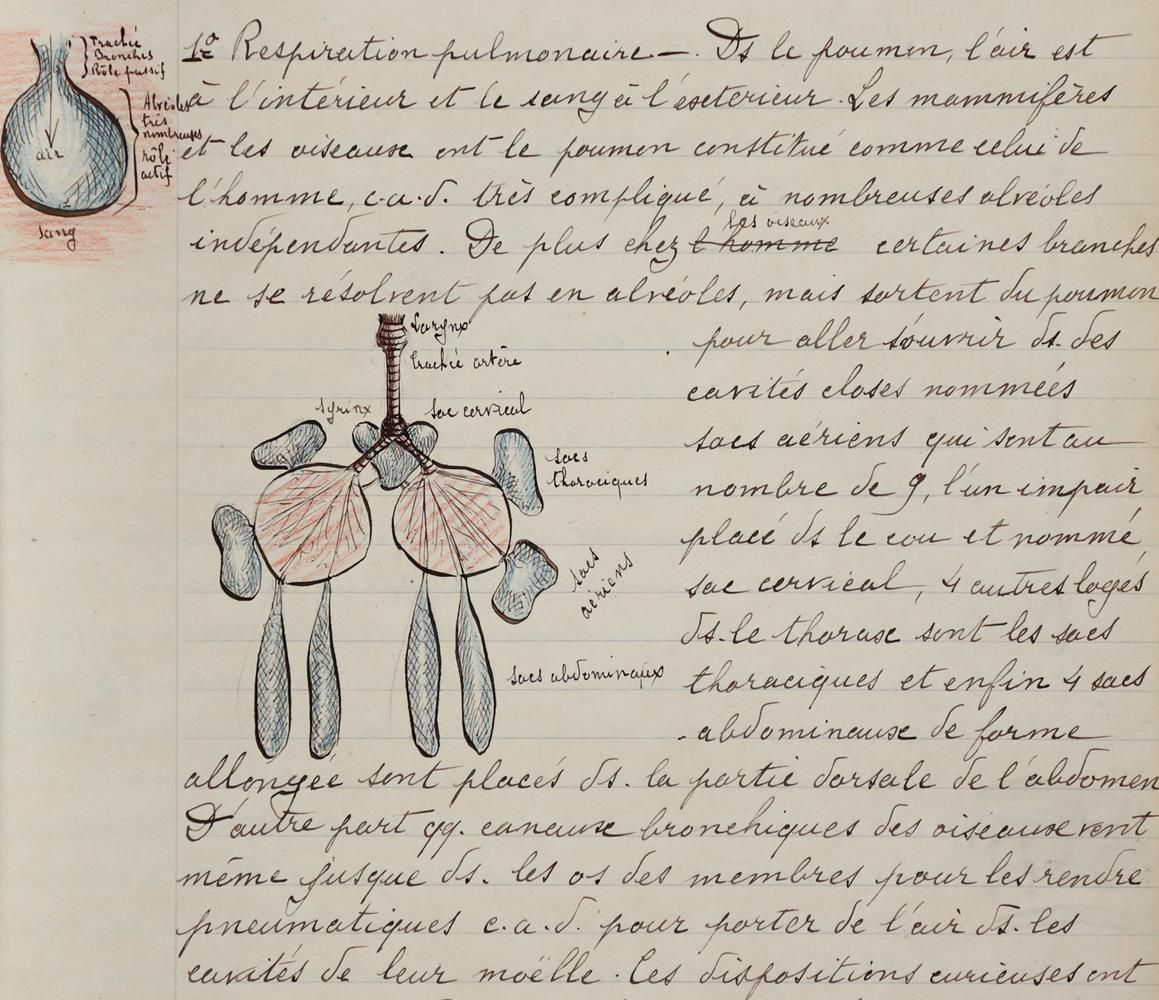 Trachée
Bronches
Rôle passif
Alvéoles
très
nombreuses
rôle
actif
air
sang
1º Respiration pulmonaire — . Ds le poumon, l'air est
à l'intérieur et le sang à l'exterieur. Les mammifères
et les oiseaux ont le poumon constitué comme celui de
l'homme, c.a.d. très compliqué, à nombreuses alvéoles
les oiseaux
indépendantes. De plus chez l'homme certaines branches
ne se résolvent pas en alvéoles, mais sortent du poumon
pour aller s'ouvrir ds. des
cavités closes nommées
sacs aériens qui sont au
nombre de 9, l'un impair
placé ds le cou et nommé
sac cervical, 4 autres logés
ds. le thorax sont les sacs
thoraciques et enfin 4 sacs
abdominaux de forme
Larynx
trachée artère
syrinx
sac cervical
sacs
thoraciques
sacs
aériens
sacs abdominaux
allongée sont placés ds. la partie dorsale de l'abdomen
D'autre part qq. canaux bronchiques des oiseaux vont
même jusque ds. les os des membres pour les rendre
pneumatiques c.a.d. pour porter de l'air ds. les
cavités de leur moëlle. Ces dispositions curieuses ont